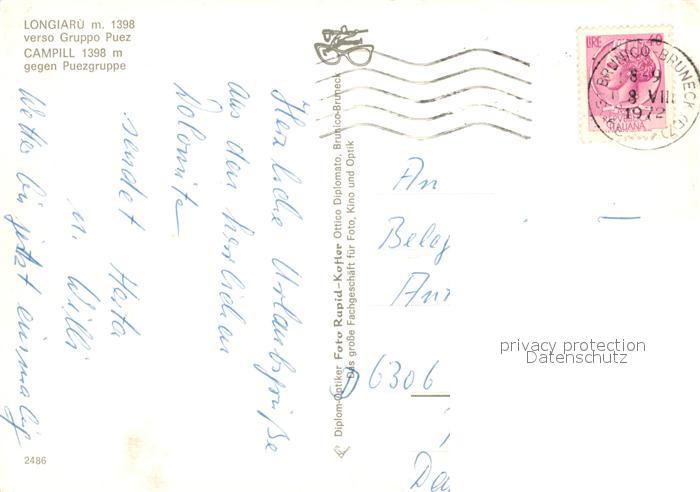 LONGIARÙ m. 1398
verso Gruppo Puez
CAMPILL 1398 m
gegen Puezgruppe
Herzliche Urlaubsgrüße
aus den herrlichen
Dolomiten
sendet Herta
u. Willi
Wetter bis jetzt einmalig
2486
Diplom-Optiker Foto Rapid-Kofler Ottico Diplomato, Brunico-Bruneck
Das große Fachgeschäft für Foto, Kino und Optik
LIRE
ITALIANA
BRUNICO-BRUNECK
8-9
8 VIII
1972
An
6306
privacy protection
Datenschutz